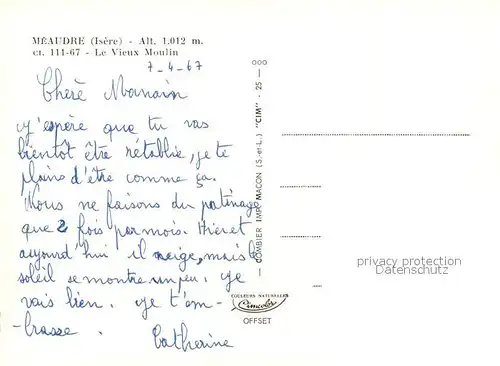 MÉAUDRE (Isère) - Alt. 1.012 m.
ct. 111-67 - Le Vieux Moulin
7-4-67
Chère Maman
j'espère que tu vas
bientôt être rétablie, je te
plains d'être comme ça.
Nous ne faisons du patinage
que 2 fois par mois. Hier et
aujourd'hui il neige, mais le
soleil se montre un peu. je
vais bien. je t'em-
-brasse.
Catherine
COMBIER IMP. MACON (S.-et-L.) "CIM" - 25 -
COULEURS NATURELLES
Cimcolor
OFFSET
privacy copyright
Datenschutz